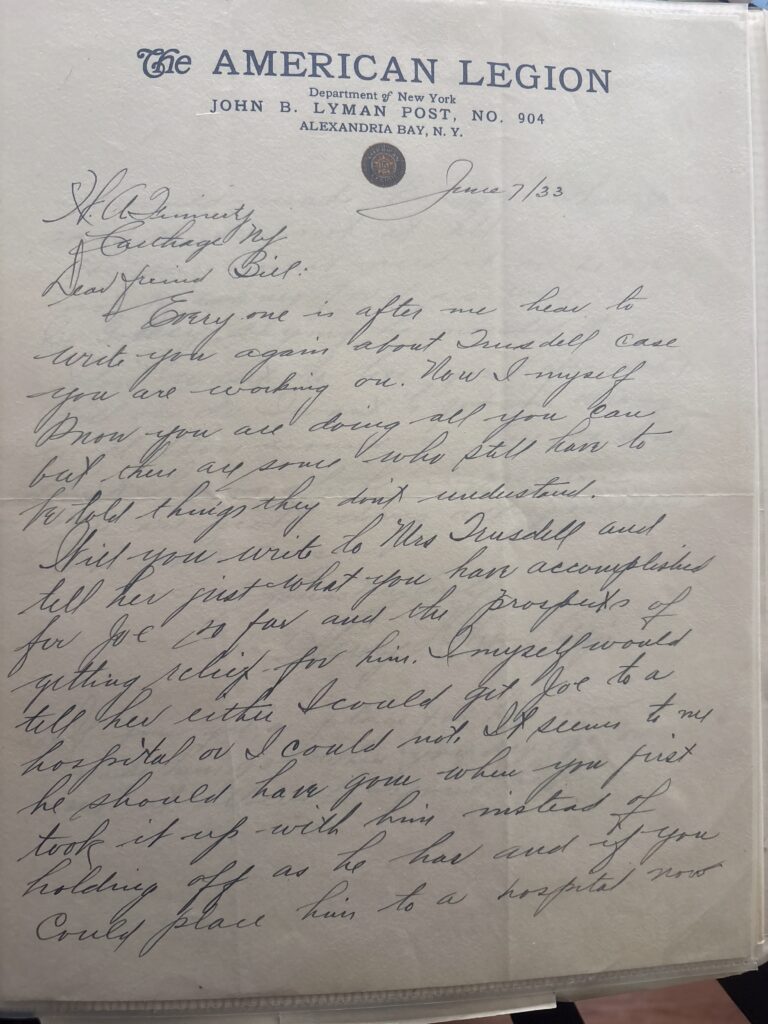 The AMERICAN LEGION
Department of New York
JOHN B. LYMAN POST, NO. 904
ALEXANDRIA BAY, N. Y.
June 7/33
Carthage NY
Dear freind Bill:
Every one is after me hear to
write you again about Trusdell case
you are working on. Now I myself
Know you are doing all you can
but there are some who still have to
be told things they don't understand.
Will you write to Mrs Trusdell and
tell her just what you have accomplished
for Joe so far and the prospects of
getting relief for him. I myself would
tell her either I could get Joe to a
hospital or I could not. It seems to me
he should have gone when you first
took it up with him instead of
holding off as he has and if you
Could place him to a hospital now